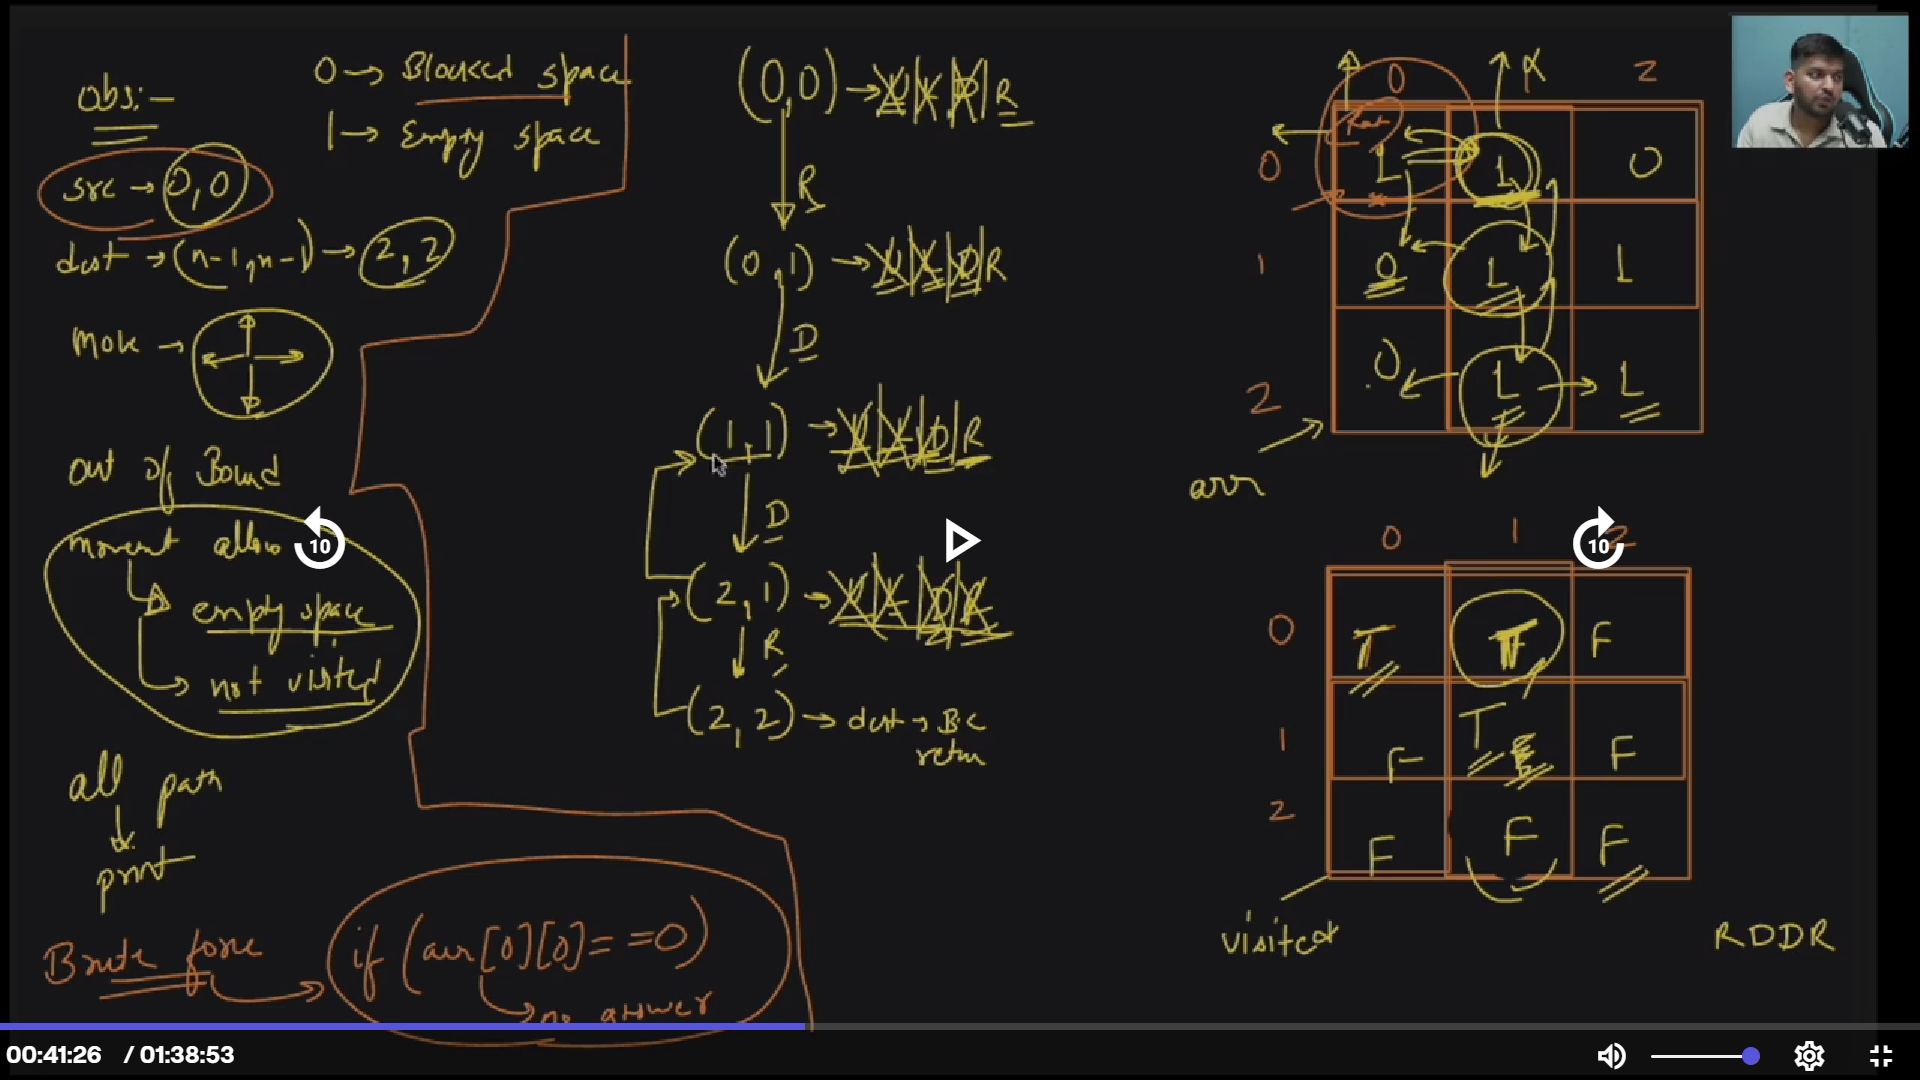 obs:-
0 → Blocked space
1 → Empty space
src → 0,0
dest → (n-1,n-1) → 2,2
Move →
out of Bound
movement allow
empty space
not visited
all path
print
Brute force
if (arr[0][0]==0)
no answer
(0,0) → U|L|D|R
R
(0,1) → U|L|D|R
D
(1,1) → U|L|D|R
D
(2,1) → U|L|D|R
R
(2,2) → dest → B.C
return
0 1 2
Rat
0 1 1 0
1 0 1 1
2 0 1 1
arr
0 1 2
0 T T F
1 F T F F
2 F F F
visited
RDDR
10
10
00:41:26 / 01:38:53